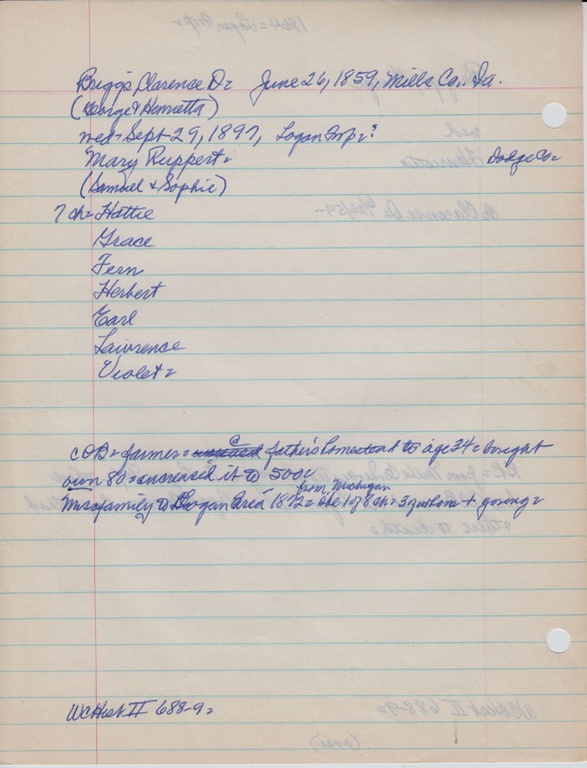 Briggs, Clarence D= June 26, 1859, Mills Co., Ia.
(George & Henrietta)
med= Sept 29, 1897, Logan Twp=?
Mary Ruppert= Dodge Co=
(Samuel & Sophie)
7 ch= Hattie
Grace
Fern
Herbert
Earl
Lawrence
Violet=
CDB= farmer= father's homestead to age 34= bought
own 80= increased it to 500=
family to Logan Area 1872= from Michigan 1 of 8 ch= 3 yrs + young=
WCHist II 688-9=